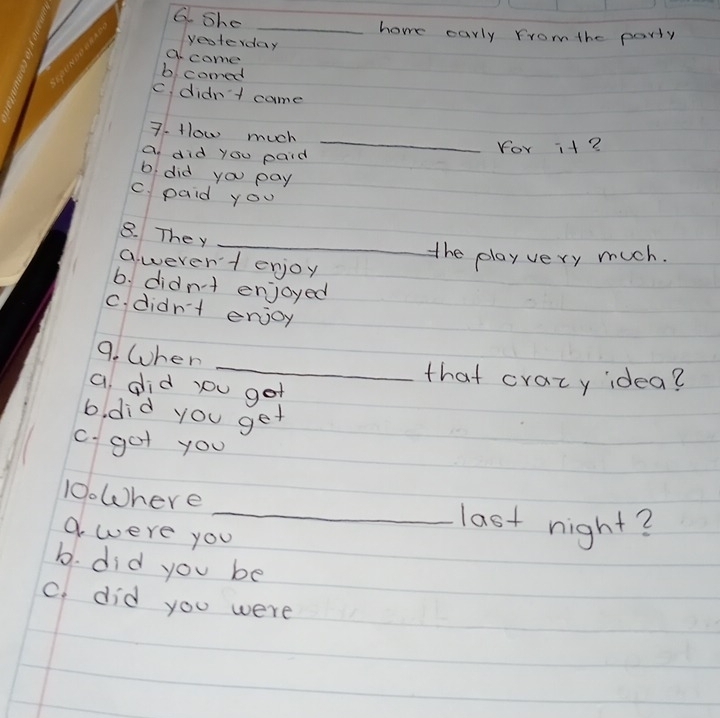 6. She ________ home early From the party
yesterday
a. came
b. comed
c. didn't came
7. How much ________ For it?
a. did you paid
b. did you pay
c. paid you
8. They ________ the play very much.
a. weren't enjoy
b. didn't enjoyed
c. didn't enjoy
9. When ________ that crazy idea?
a. did you got
b. did you get
c. got you
10. Where ________ last night?
a. were you
b. did you be
c. did you were
SEGUNDO GRADO